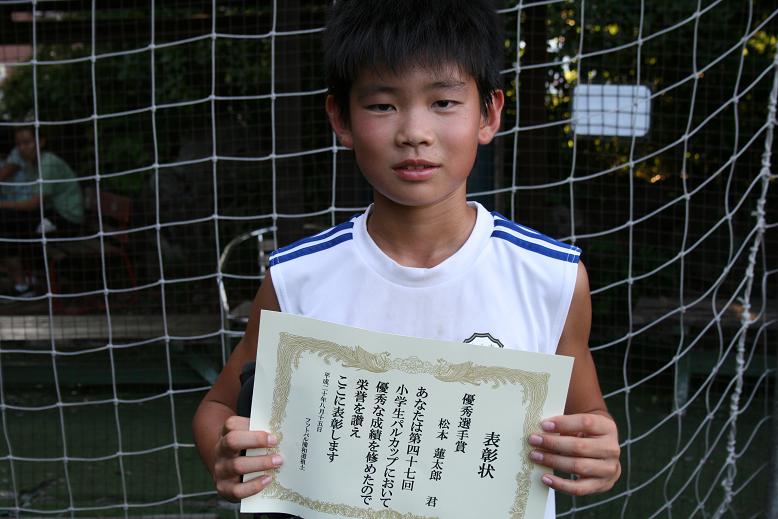 表彰状
優秀選手賞
松本 蓮太郎 君
あなたは第四十七回
小学生パルカップにおいて
優秀な成績を修めたので
栄誉を讃え
ここに表彰します
平成二十年八月十五日